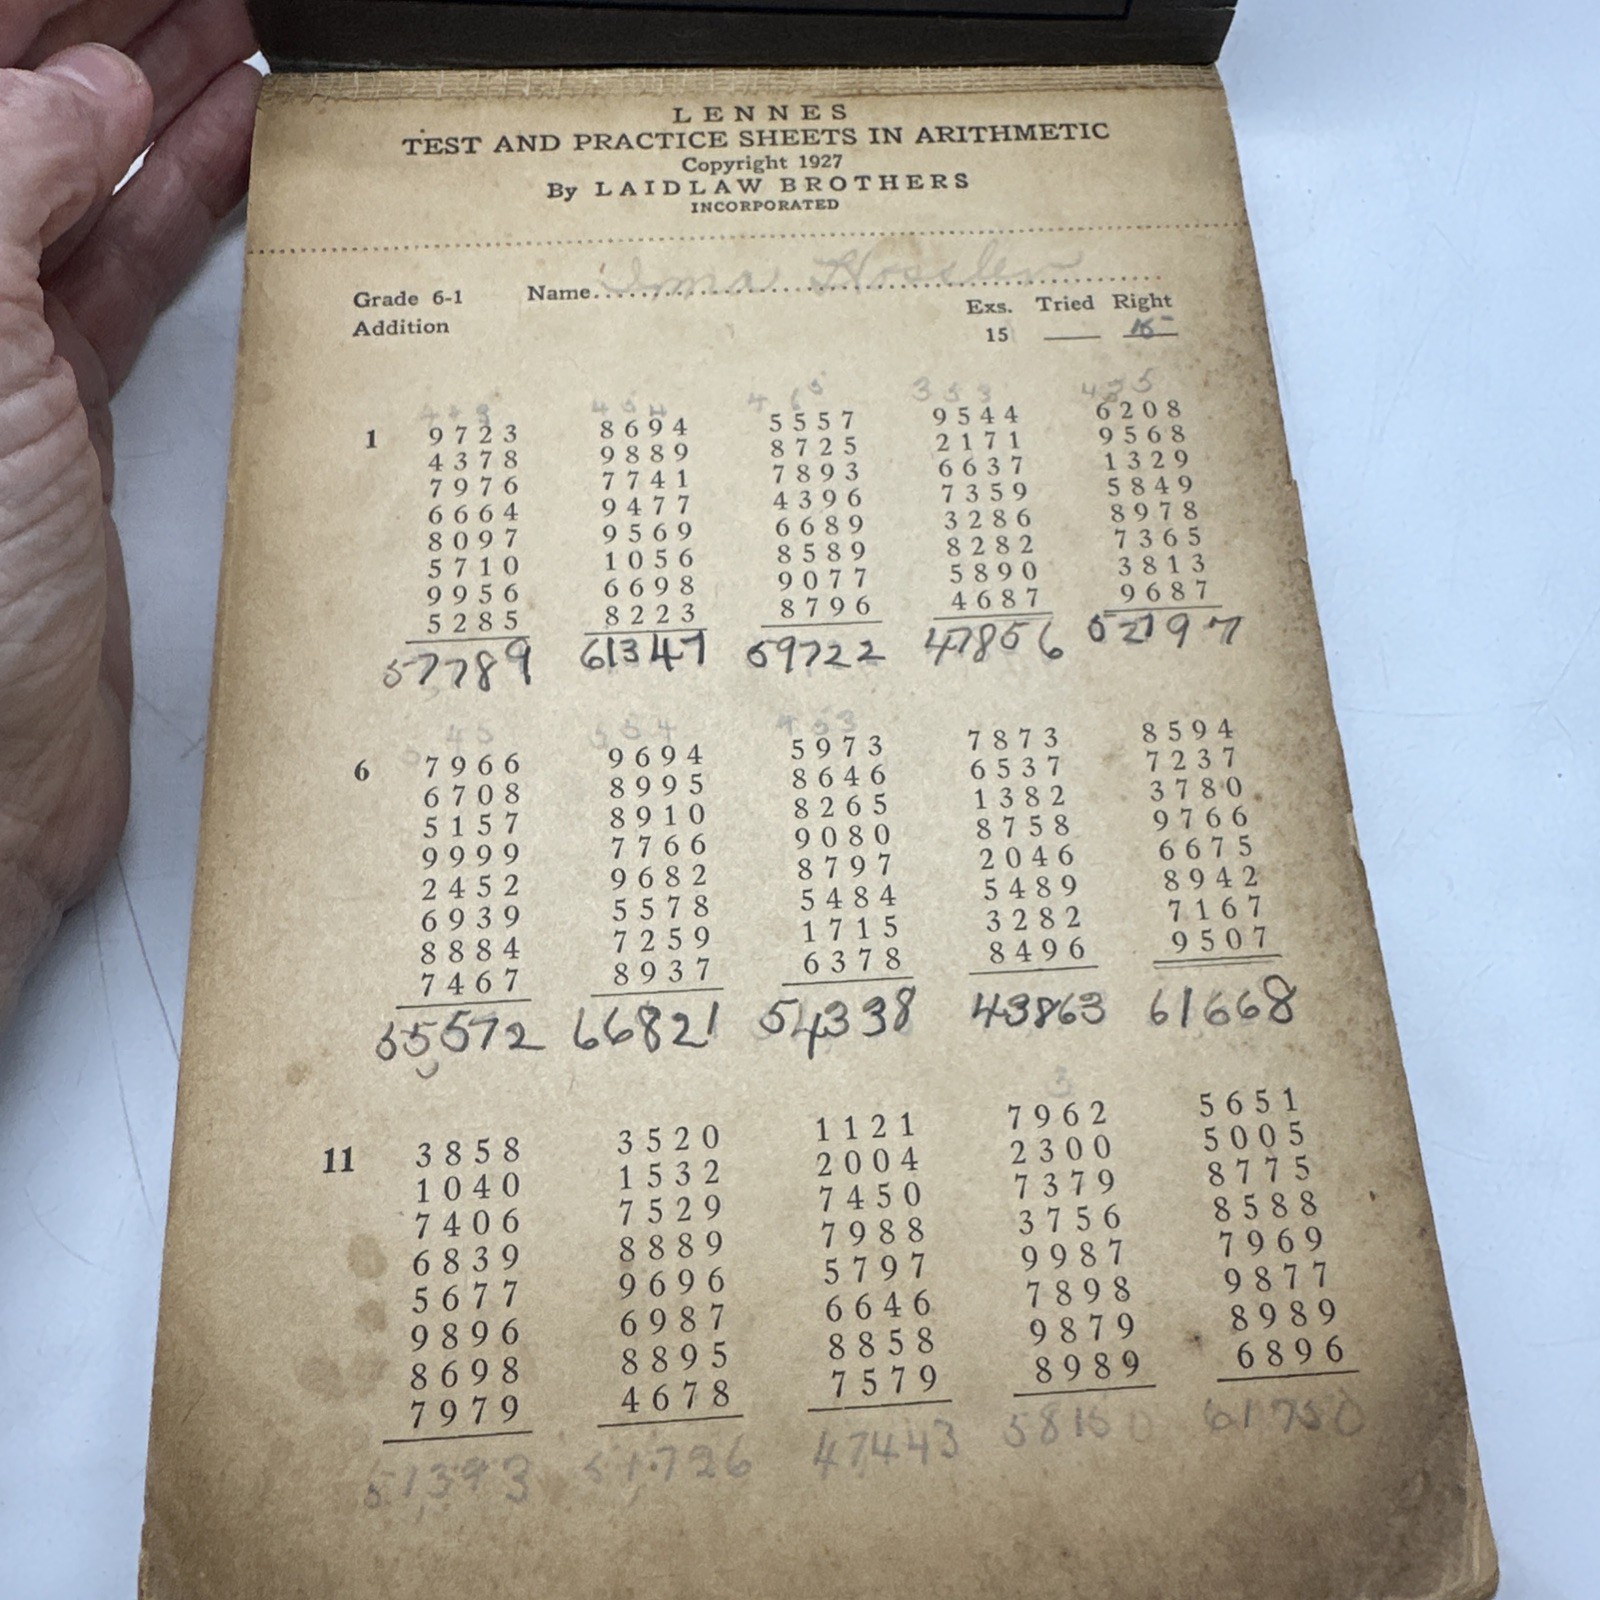 LENNES
TEST AND PRACTICE SHEETS IN ARITHMETIC
Copyright 1927
By LAIDLAW BROTHERS
INCORPORATED
Grade 6-1 Name Irma Hossler
Addition Exs. Tried Right
15 15
4 4 3 4 5 4 4 6 5 3 5 3 4 3 5
1 9723 8694 5557 9544 6208
4378 9889 8725 2171 9568
7976 7741 7893 6637 1329
6664 9477 4396 7359 5849
8097 9569 6689 3286 8978
5710 1056 8589 8282 7365
9956 6698 9077 5890 3813
5285 8223 8796 4687 9687
57789 61347 59722 47856 52797
5 4 5 5 5 4 4 5 3
6 7966 9694 5973 7873 8594
6708 8995 8646 6537 7237
5157 8910 8265 1382 3780
9999 7766 9080 8758 9766
2452 9682 8797 2046 6675
6939 5578 5484 5489 8942
8884 7259 1715 3282 7167
7467 8937 6378 8496 9507
55572 66821 54338 43863 61668
3
11 3858 3520 1121 7962 5651
1040 1532 2004 2300 5005
7406 7529 7450 7379 8775
6839 8889 7988 3756 8588
5677 9696 5797 9987 7969
9896 6987 6646 7898 9877
8698 8895 8858 9879 8989
7979 4678 7579 8989 6896
51393 51726 47443 58150 61750